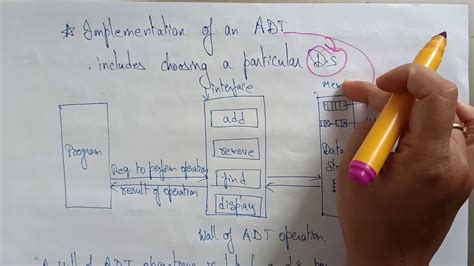 * Implementation of an ADT
. includes choosing a particular DS
interface
add
remove
find
display
Program
Req to perform operation
result of operation
Data
Wall of ADT operation.